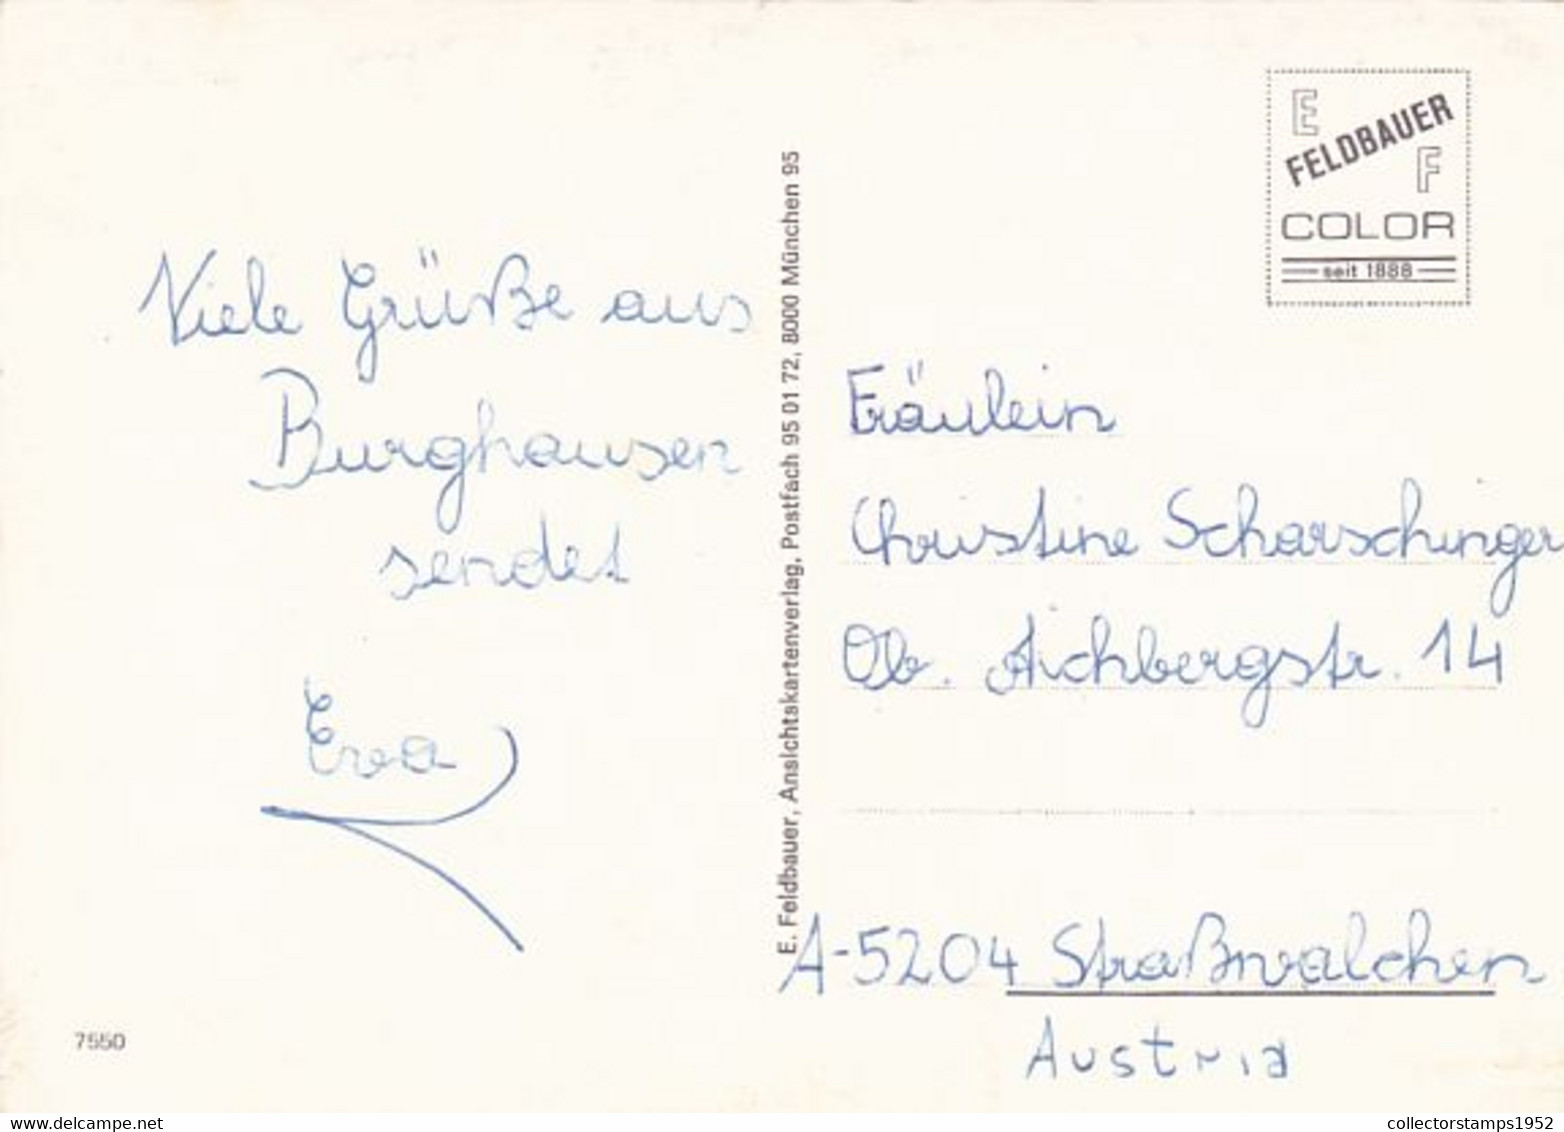 Viele Grüße aus
Burghausen
sendet
Eva
7550
E. Feldbauer, Ansichtskartenverlag, Postfach 95 01 72, 8000 München 95
E
FELDBAUER
F
COLOR
seit 1888
Fräulein
Christine Scharschinger
Ob. Aichbergstr. 14
A-5204 Straßwalchen
Austria
www.delcampe.net
collectorstamps1952